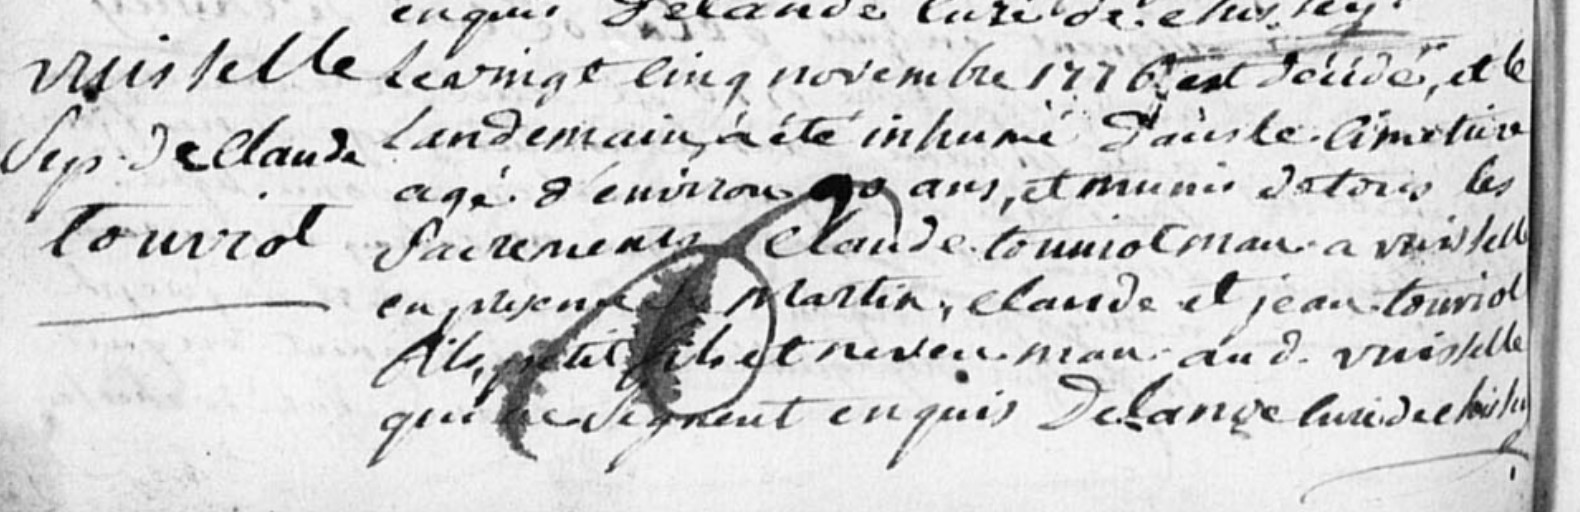 enquis Delande Curé de chissey
vuisselle
Sep. de Claude
touviot
Le vingt cinq novembre 1776 est décédé, et le
landemain, a été inhumé dans le cimetiere
agé d'environ 90 ans, et munis de tous les
Sacrements Claude touviot man. a vuisselle
en presence de Martin, claude et jean touviot
fils, petit fils et neveu man. aud. vuisselle
qui ne Signent enquis Delande Curé de chissey